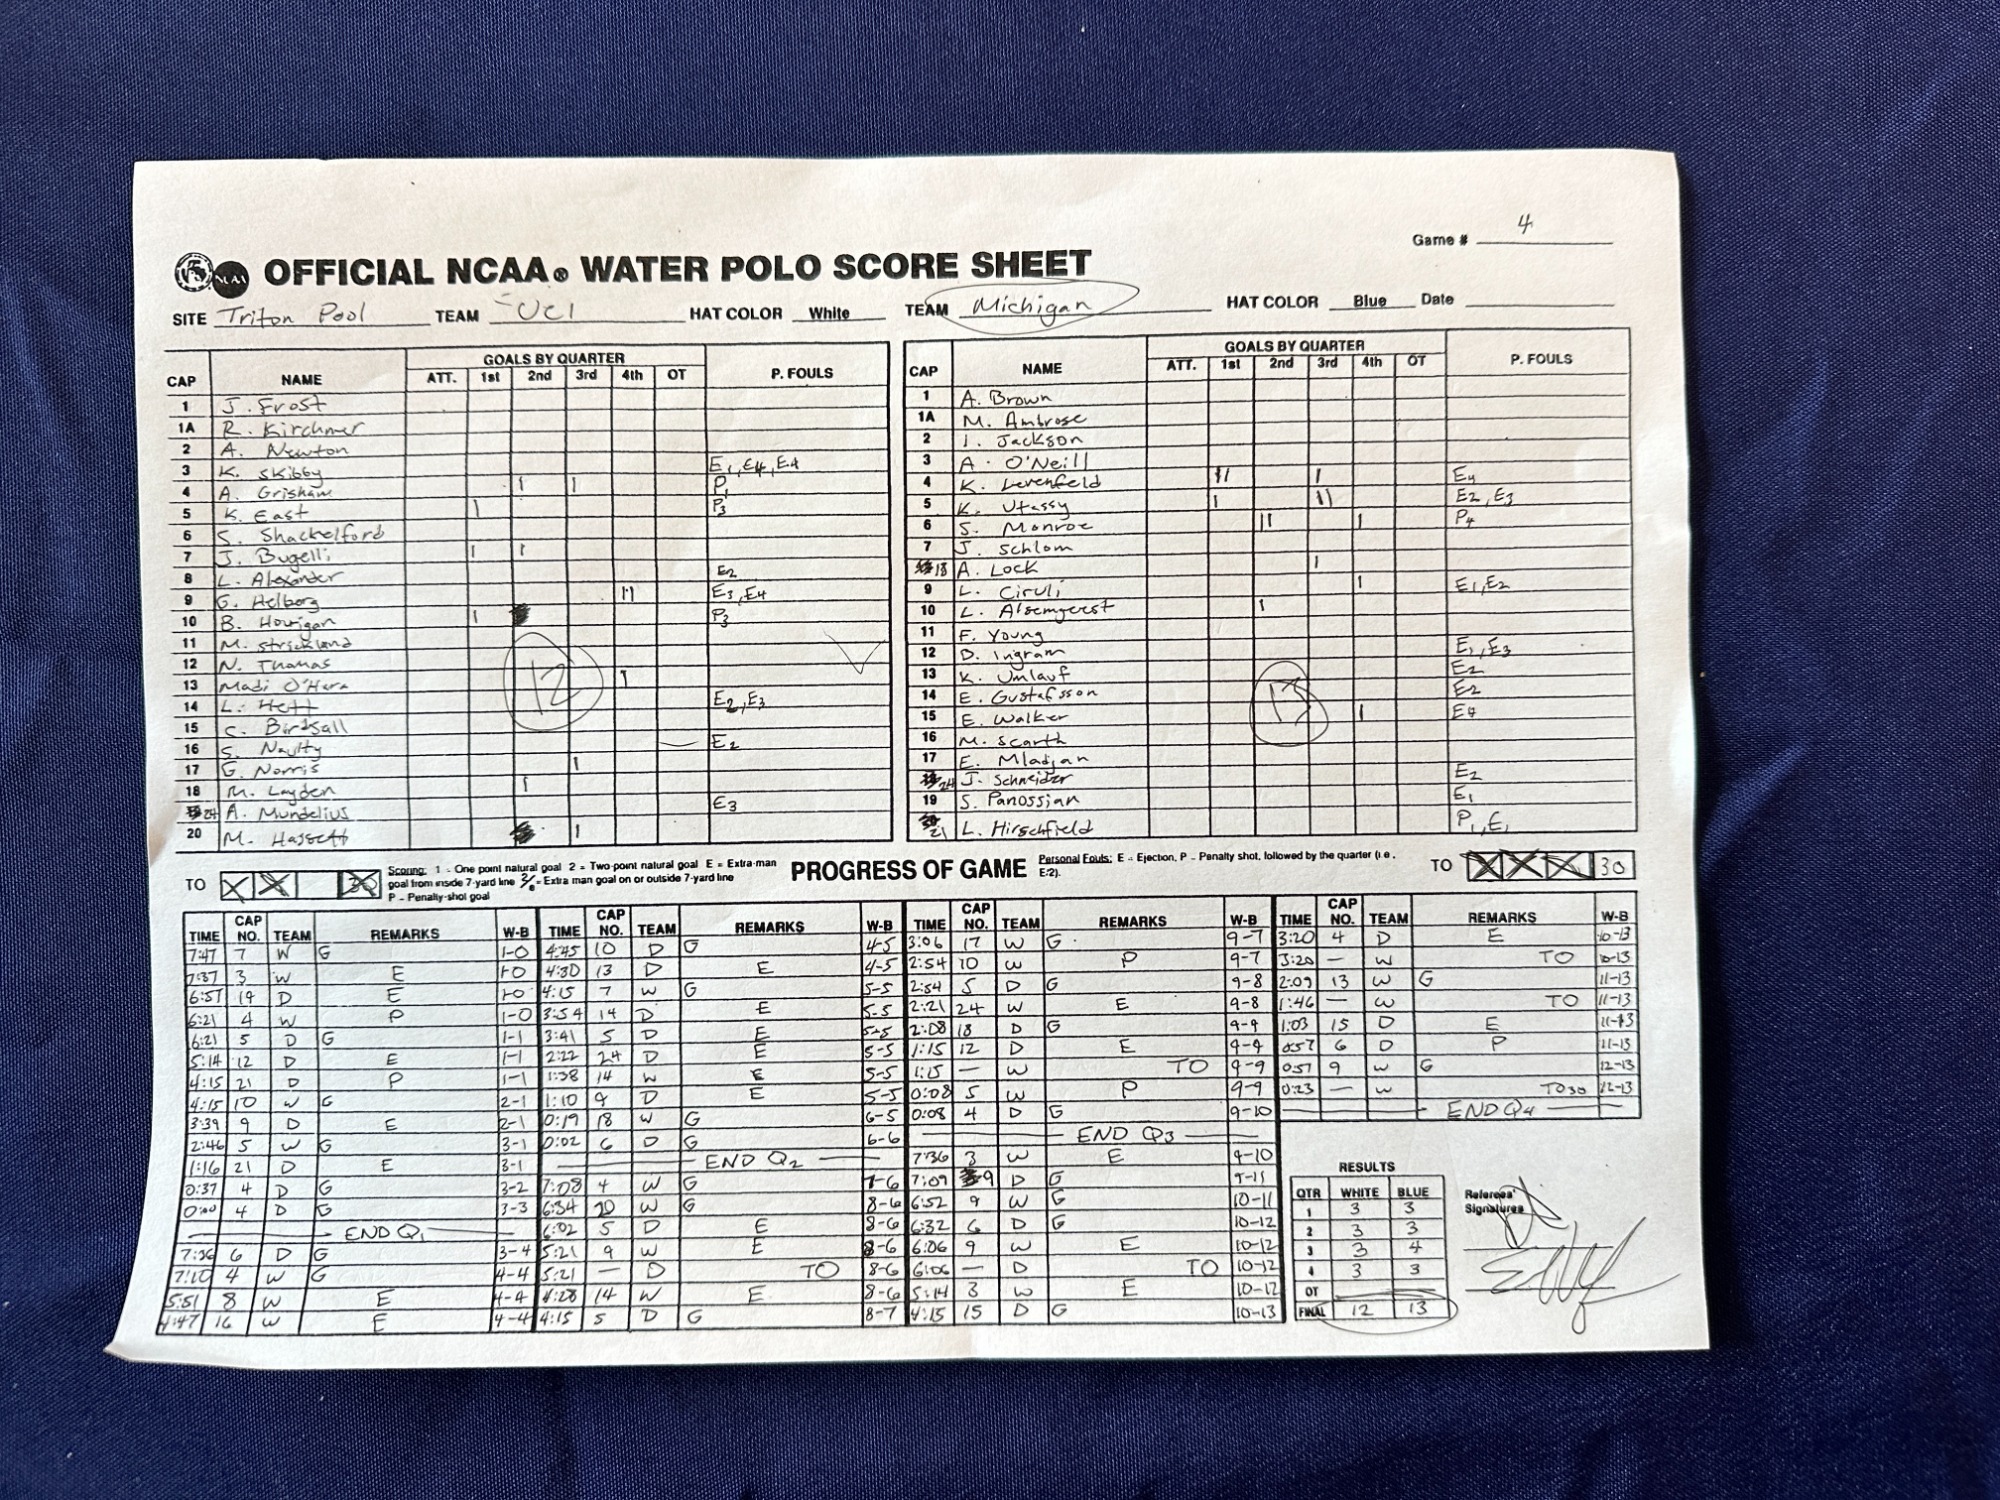 Game # 4
OFFICIAL NCAA® WATER POLO SCORE SHEET
SITE Triton Pool TEAM UCI HAT COLOR White TEAM Michigan HAT COLOR Blue Date
GOALS BY QUARTER
CAP NAME ATT. 1st 2nd 3rd 4th OT P. FOULS
1 J. Frost
1A R. Kirchmer
2 A. Newton
3 K. Skibby E1, E4, E4
4 A. Grisham I I P1
5 K. East I P3
6 S. Shackelford
7 J. Bugelli I I
8 L. Alexander E2
9 G. Helborg II E3, E4
10 B. Hourigan I P3
11 M. Strickland
12 N. Thomas
13 Madi O'Hara I
14 L. Hett E2, E3
15 C. Birdsall
16 S. Naulty E2
17 G. Norris I
18 M. Layden I
24 A. Mundelius E3
20 M. Hassett I
12
GOALS BY QUARTER
CAP NAME ATT. 1st 2nd 3rd 4th OT P. FOULS
1 A. Brown
1A M. Ambrose
2 I. Jackson
3 A. O'Neill
4 K. Levenfeld II I E4
5 K. Utassy I II E2, E3
6 S. Monroe II I P4
7 J. Schlom
18 A. Lock I
9 L. Ciruli I E1, E2
10 L. Alsemgeest I
11 F. Young
12 D. Ingram E1, E3
13 K. Umlauf E2
14 E. Gustafsson E2
15 E. Walker I E4
16 M. Scarth
17 E. Mladjan
24 J. Schneider E2
19 S. Panossian E1
21 L. Hirschfield P1, E1
13
TO X X 30
Scoring: 1 - One point natural goal 2 = Two-point natural goal E = Extra-man
goal from inside 7-yard line 2/E = Extra man goal on or outside 7-yard line
P - Penalty-shot goal
PROGRESS OF GAME
Personal Fouls: E - Ejection, P - Penalty shot, followed by the quarter (i.e.
E:2).
TO X X X 30
TIME CAP NO. TEAM REMARKS W-B
7:47 7 W G 1-0
7:37 3 W E 1-0
6:57 19 D E 1-0
6:21 4 W P 1-0
6:21 5 D G 1-1
5:14 12 D E 1-1
4:15 21 D P 1-1
4:15 10 W G 2-1
3:39 9 D E 2-1
2:46 5 W G 3-1
1:16 21 D E 3-1
0:37 4 D G 3-2
0:00 4 D G 3-3
END Q1
7:36 6 D G 3-4
7:10 4 W G 4-4
5:51 8 W E 4-4
4:47 16 W E 4-4
TIME CAP NO. TEAM REMARKS W-B
4:45 10 D G 4-5
4:30 13 D E 4-5
4:15 7 W G 5-5
3:54 14 D E 5-5
3:41 5 D E 5-5
2:22 24 D E 5-5
1:38 14 W E 5-5
1:10 9 D E 5-5
0:19 18 W G 6-5
0:02 6 D G 6-6
END Q2
7:08 4 W G 7-6
6:34 20 W G 8-6
6:02 5 D E 8-6
5:21 9 W E 8-6
5:21 — D TO 8-6
4:28 14 W E 8-6
4:15 5 D G 8-7
TIME CAP NO. TEAM REMARKS W-B
3:06 17 W G 9-7
2:54 10 W P 9-7
2:54 5 D G 9-8
2:21 24 W E 9-8
2:08 18 D G 9-9
1:15 12 D E 9-9
1:15 — W TO 9-9
0:08 5 W P 9-9
0:08 4 D G 9-10
END Q3
7:36 3 W E 9-10
7:09 9 D G 9-11
6:52 9 W G 10-11
6:32 6 D G 10-12
6:06 9 W E 10-12
6:06 — D TO 10-12
5:14 3 W E 10-12
4:15 15 D G 10-13
TIME CAP NO. TEAM REMARKS W-B
3:20 4 D E 10-13
3:20 — W TO 10-13
2:09 13 W G 11-13
1:46 — W TO 11-13
1:03 15 D E 11-13
0:57 6 D P 11-13
0:57 9 W G 12-13
0:23 — W TO30 12-13
END Q4
RESULTS
QTR WHITE BLUE
1 3 3
2 3 3
3 3 4
4 3 3
OT
FINAL 12 13
Referees'
Signatures